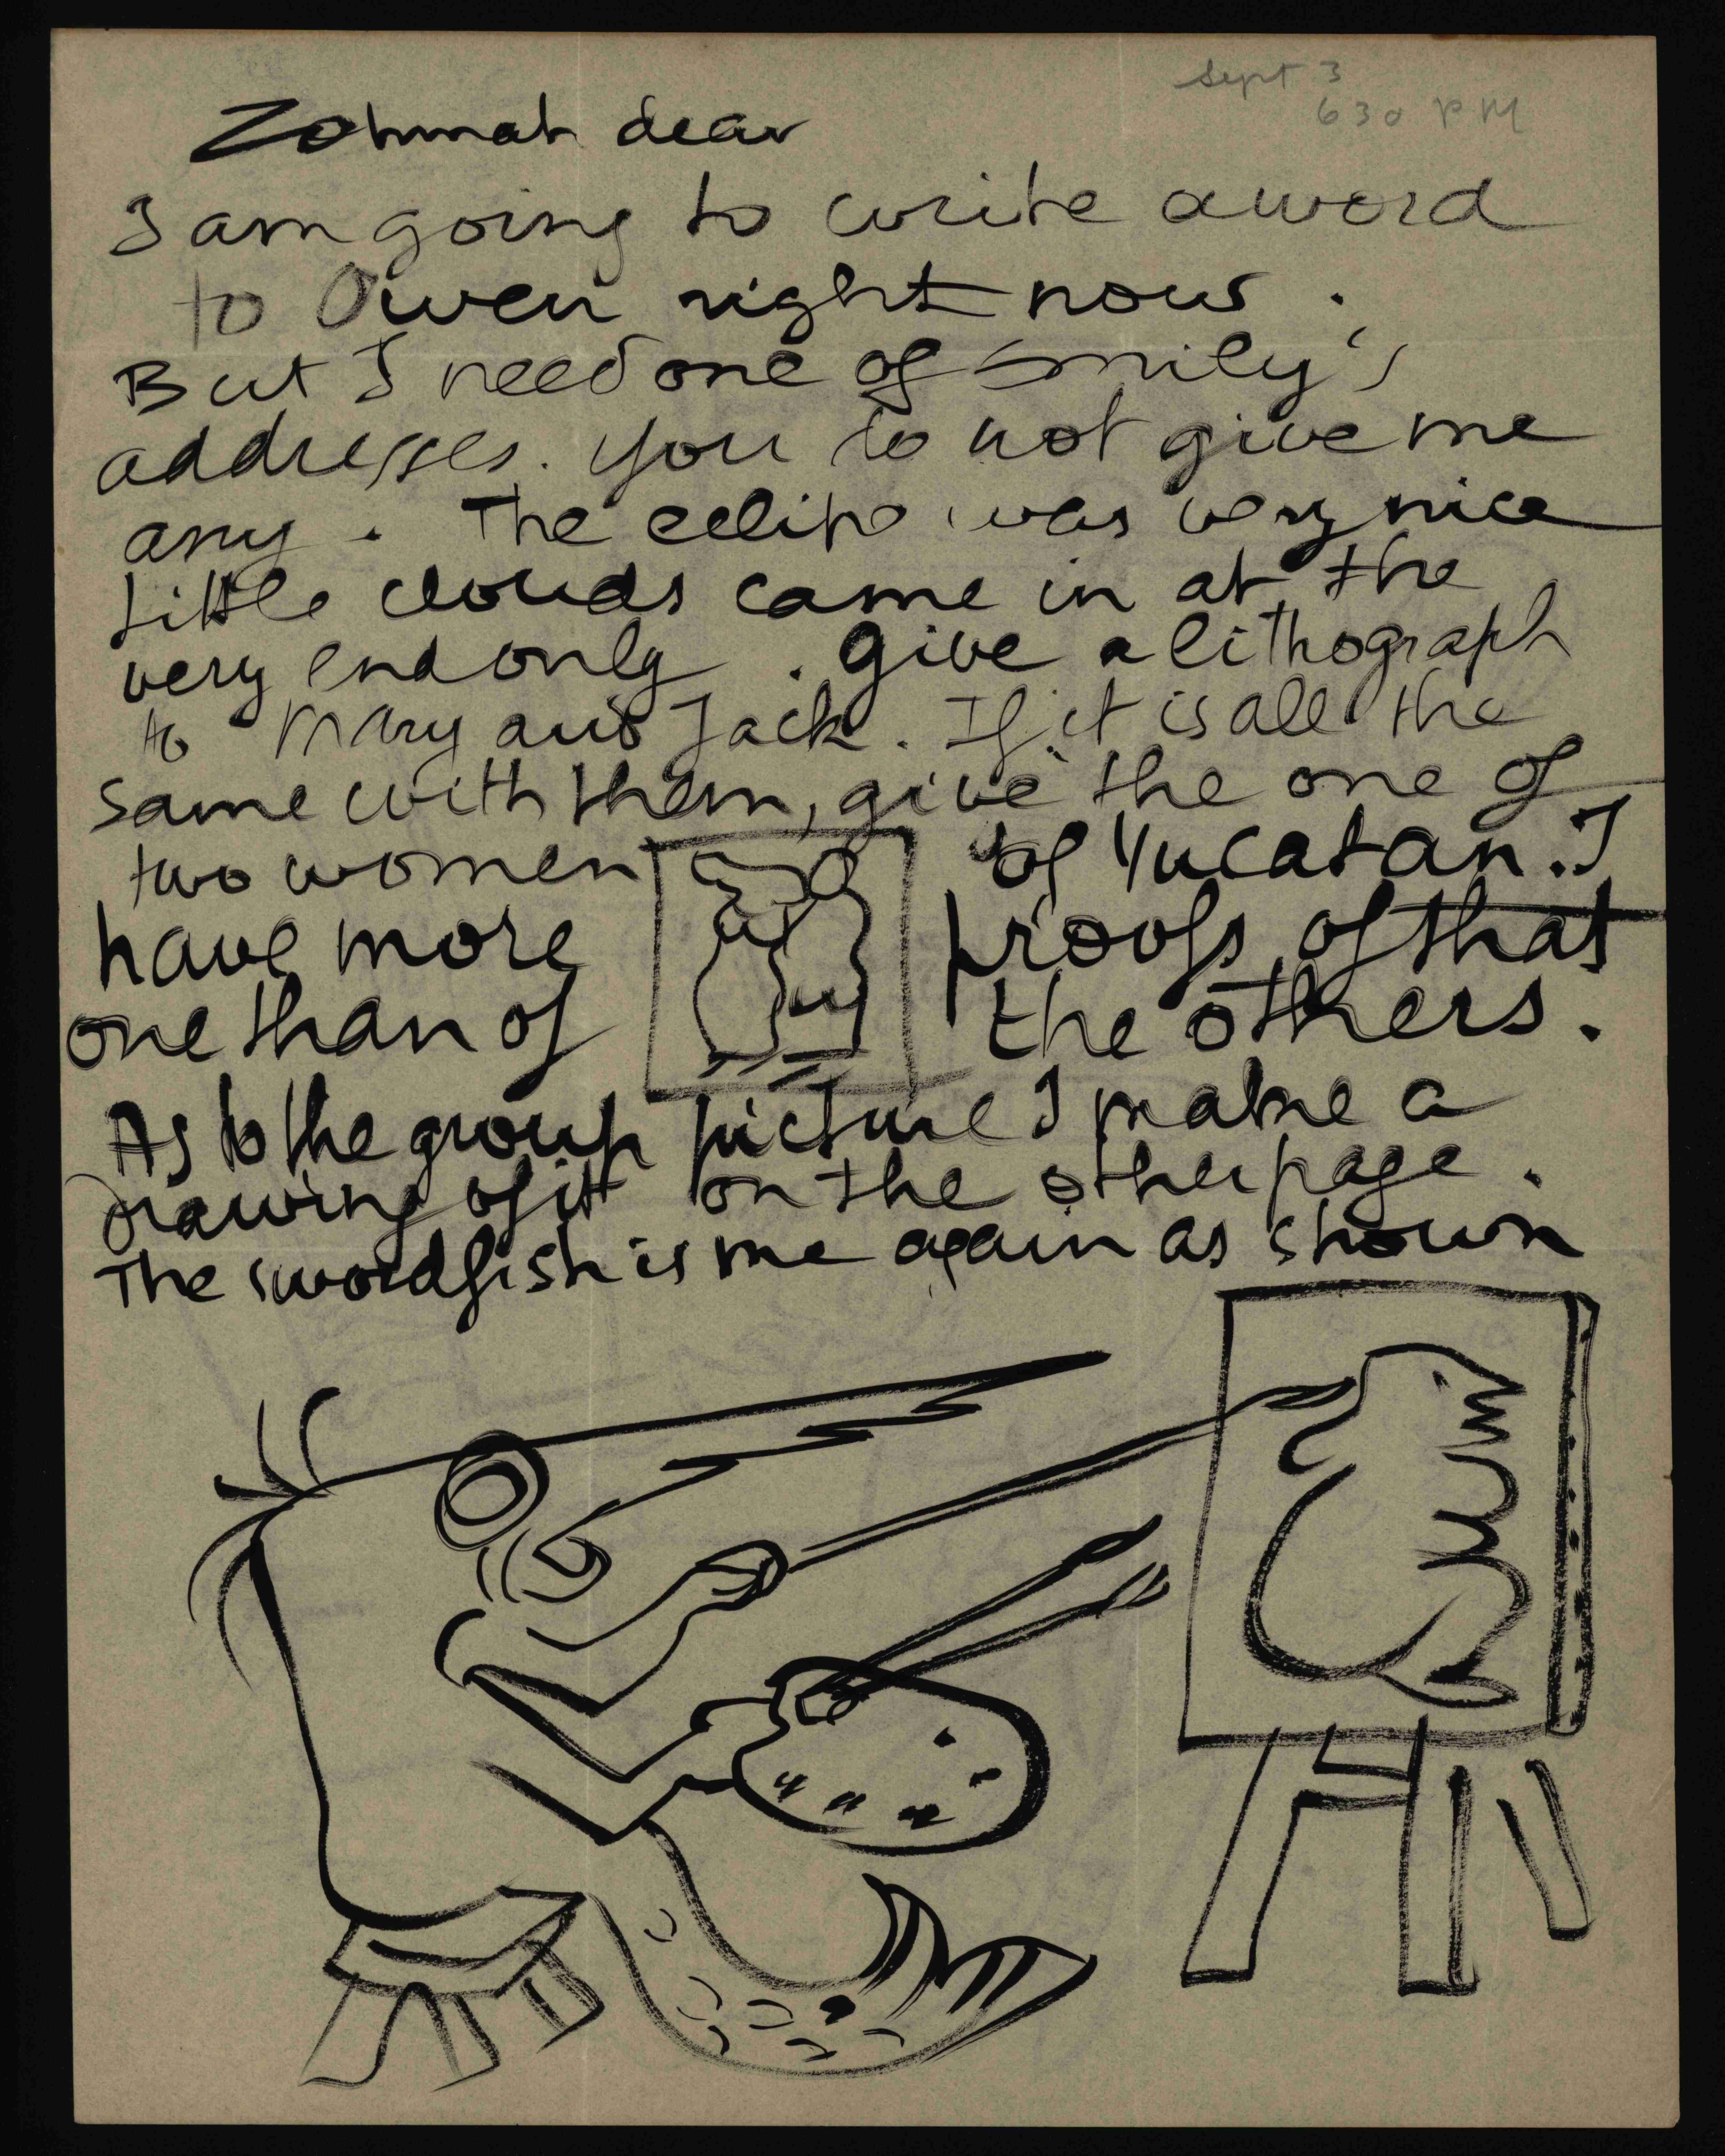 Sept 3
630 PM
Zohmah dear
I am going to write a word
to Owen right now.
But I need one of Emily's
addresses. You do not give me
any. The was very nice
little clouds came in at the
very end only. Give a lithograph
to Mary and Jack. If it is all the
same with them, give the one of
two women of Yucatan. I
have more proofs of that
one than of the others.
As to the group picture I make a
drawing of it on the other page.
The swordfish is me again as shown